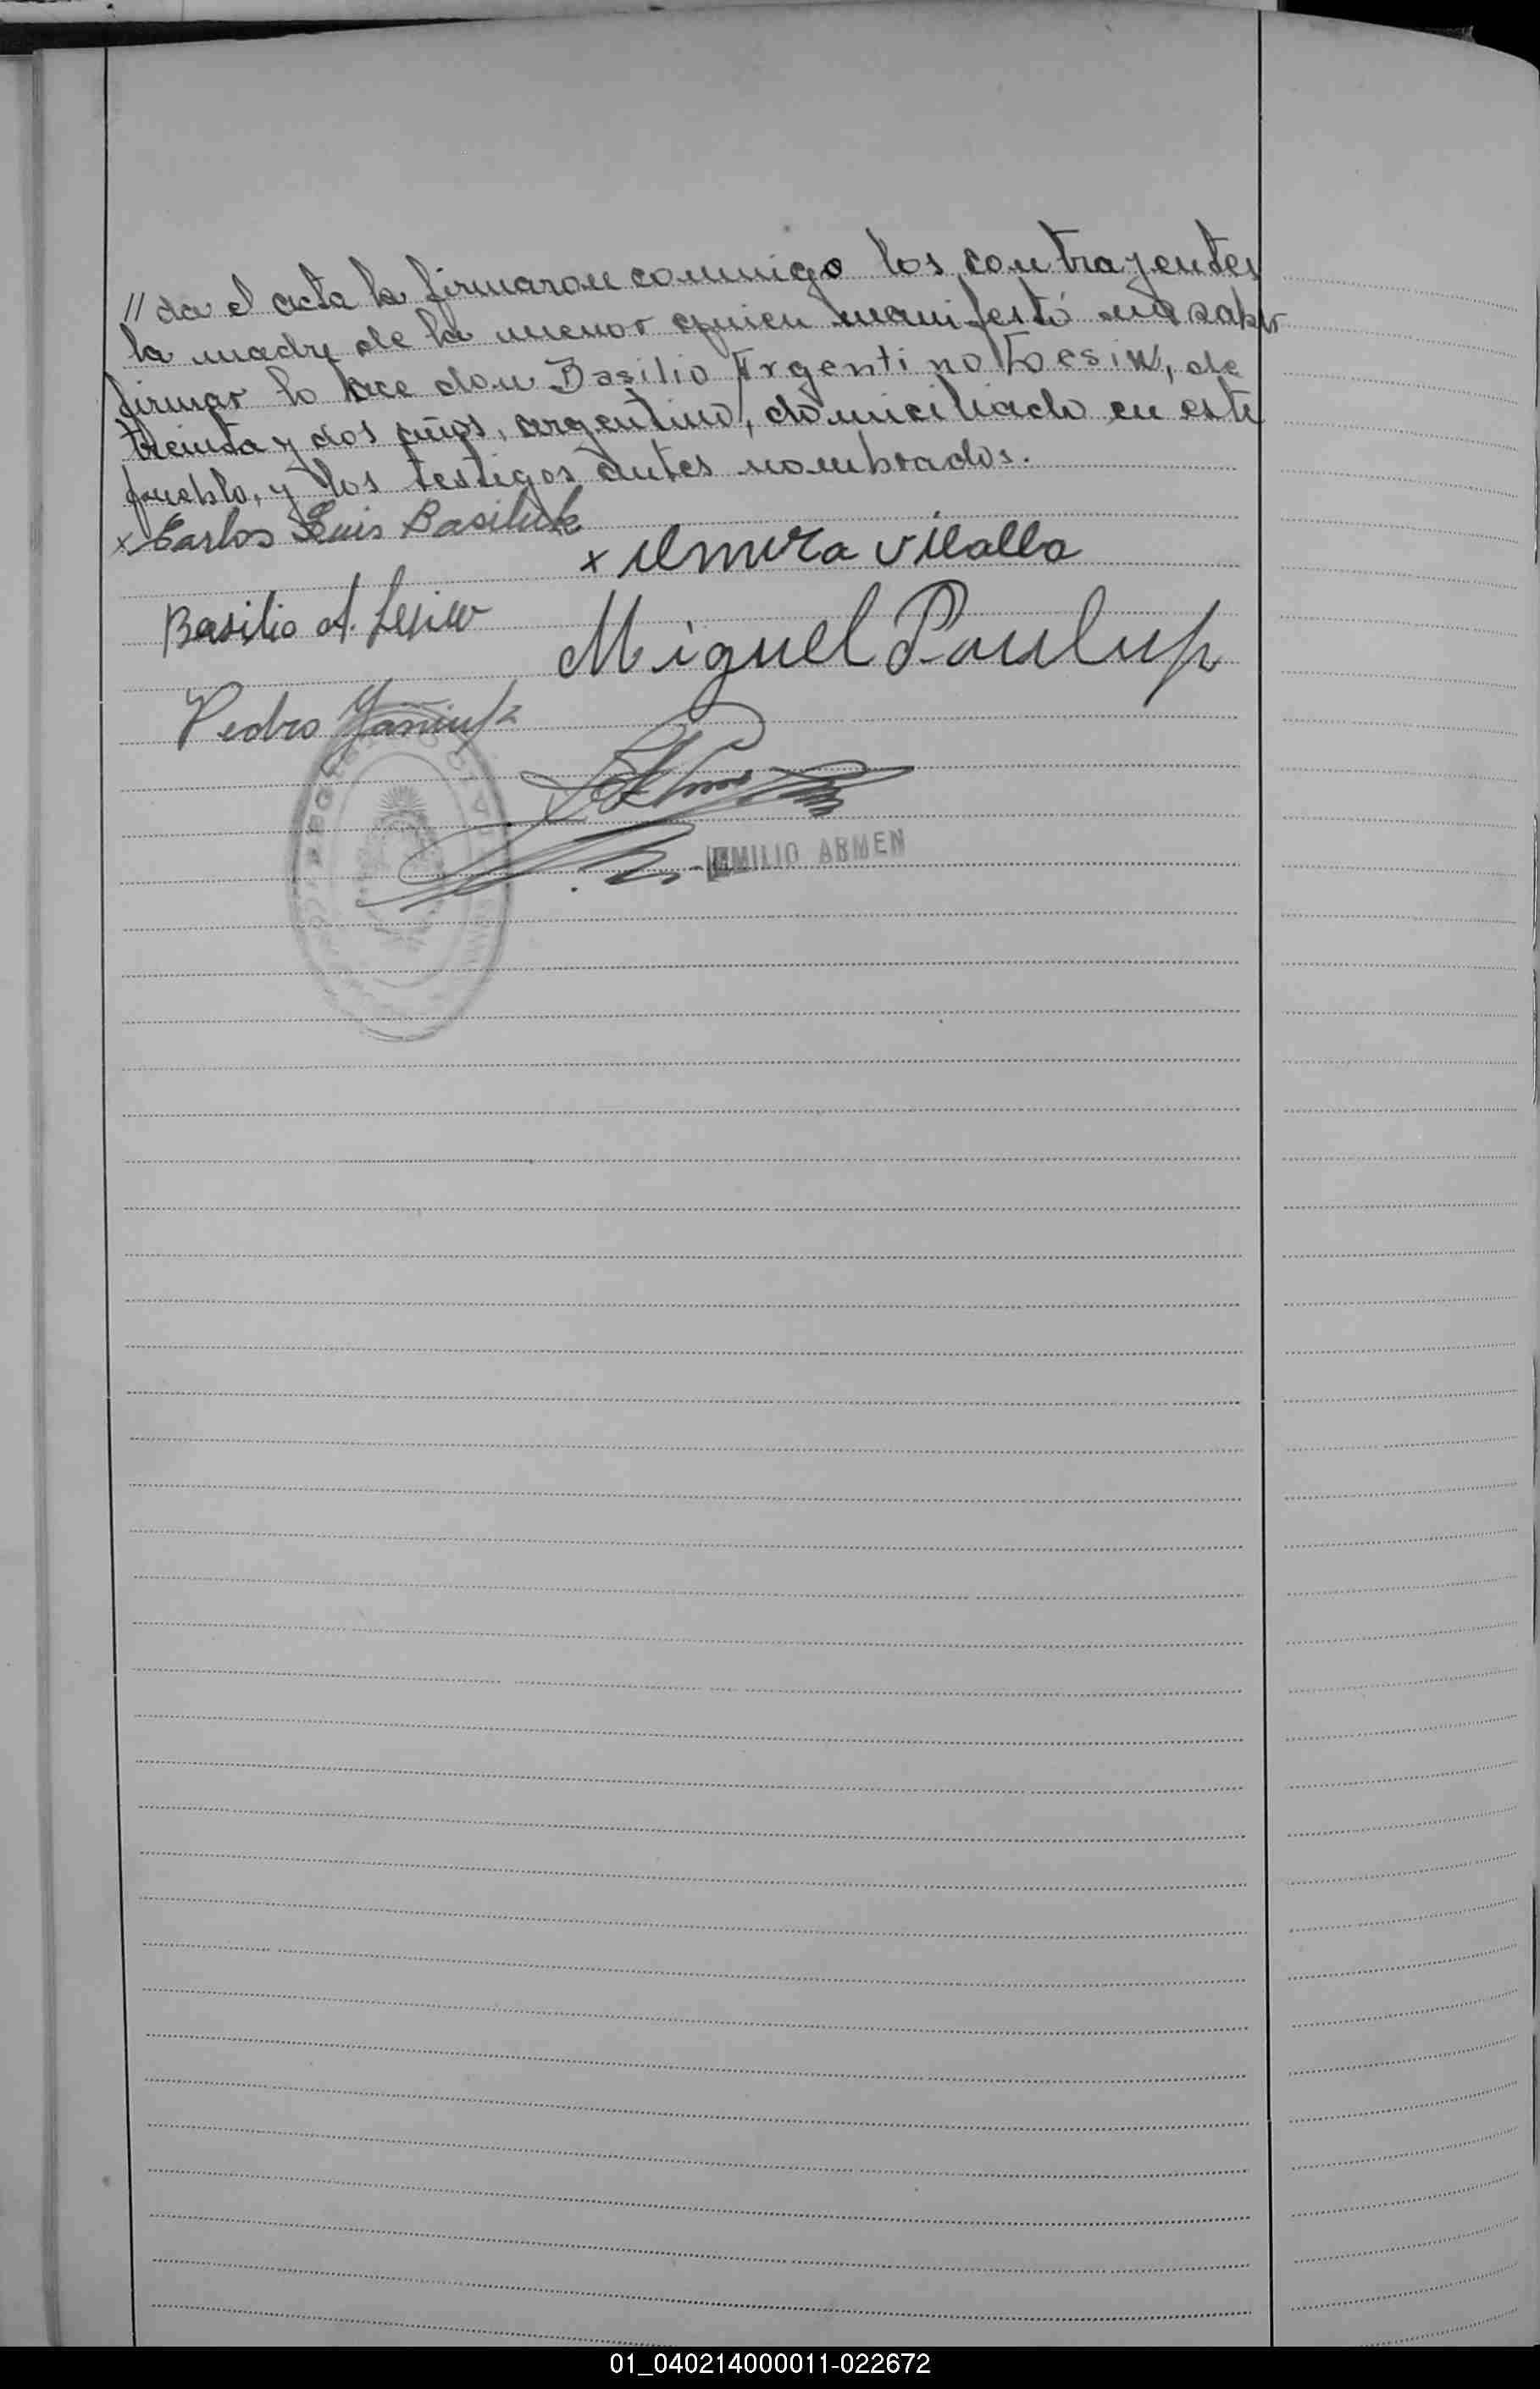 // da el acta la firmaron conmigo los contrayentes
la madre de la menor quien manifestó no saber
firmar lo hace don Basilio Argentino Lesiw, de
treinta y dos años, argentino, domiciliado en este
pueblo, y los testigos antes nombrados.
x Carlos Luis Basiluk
x Elmira vilalla
Basilio A. Lesiw
Miguel Paulup
Pedro
EMILIO ARMEN
01_040214000011-022672